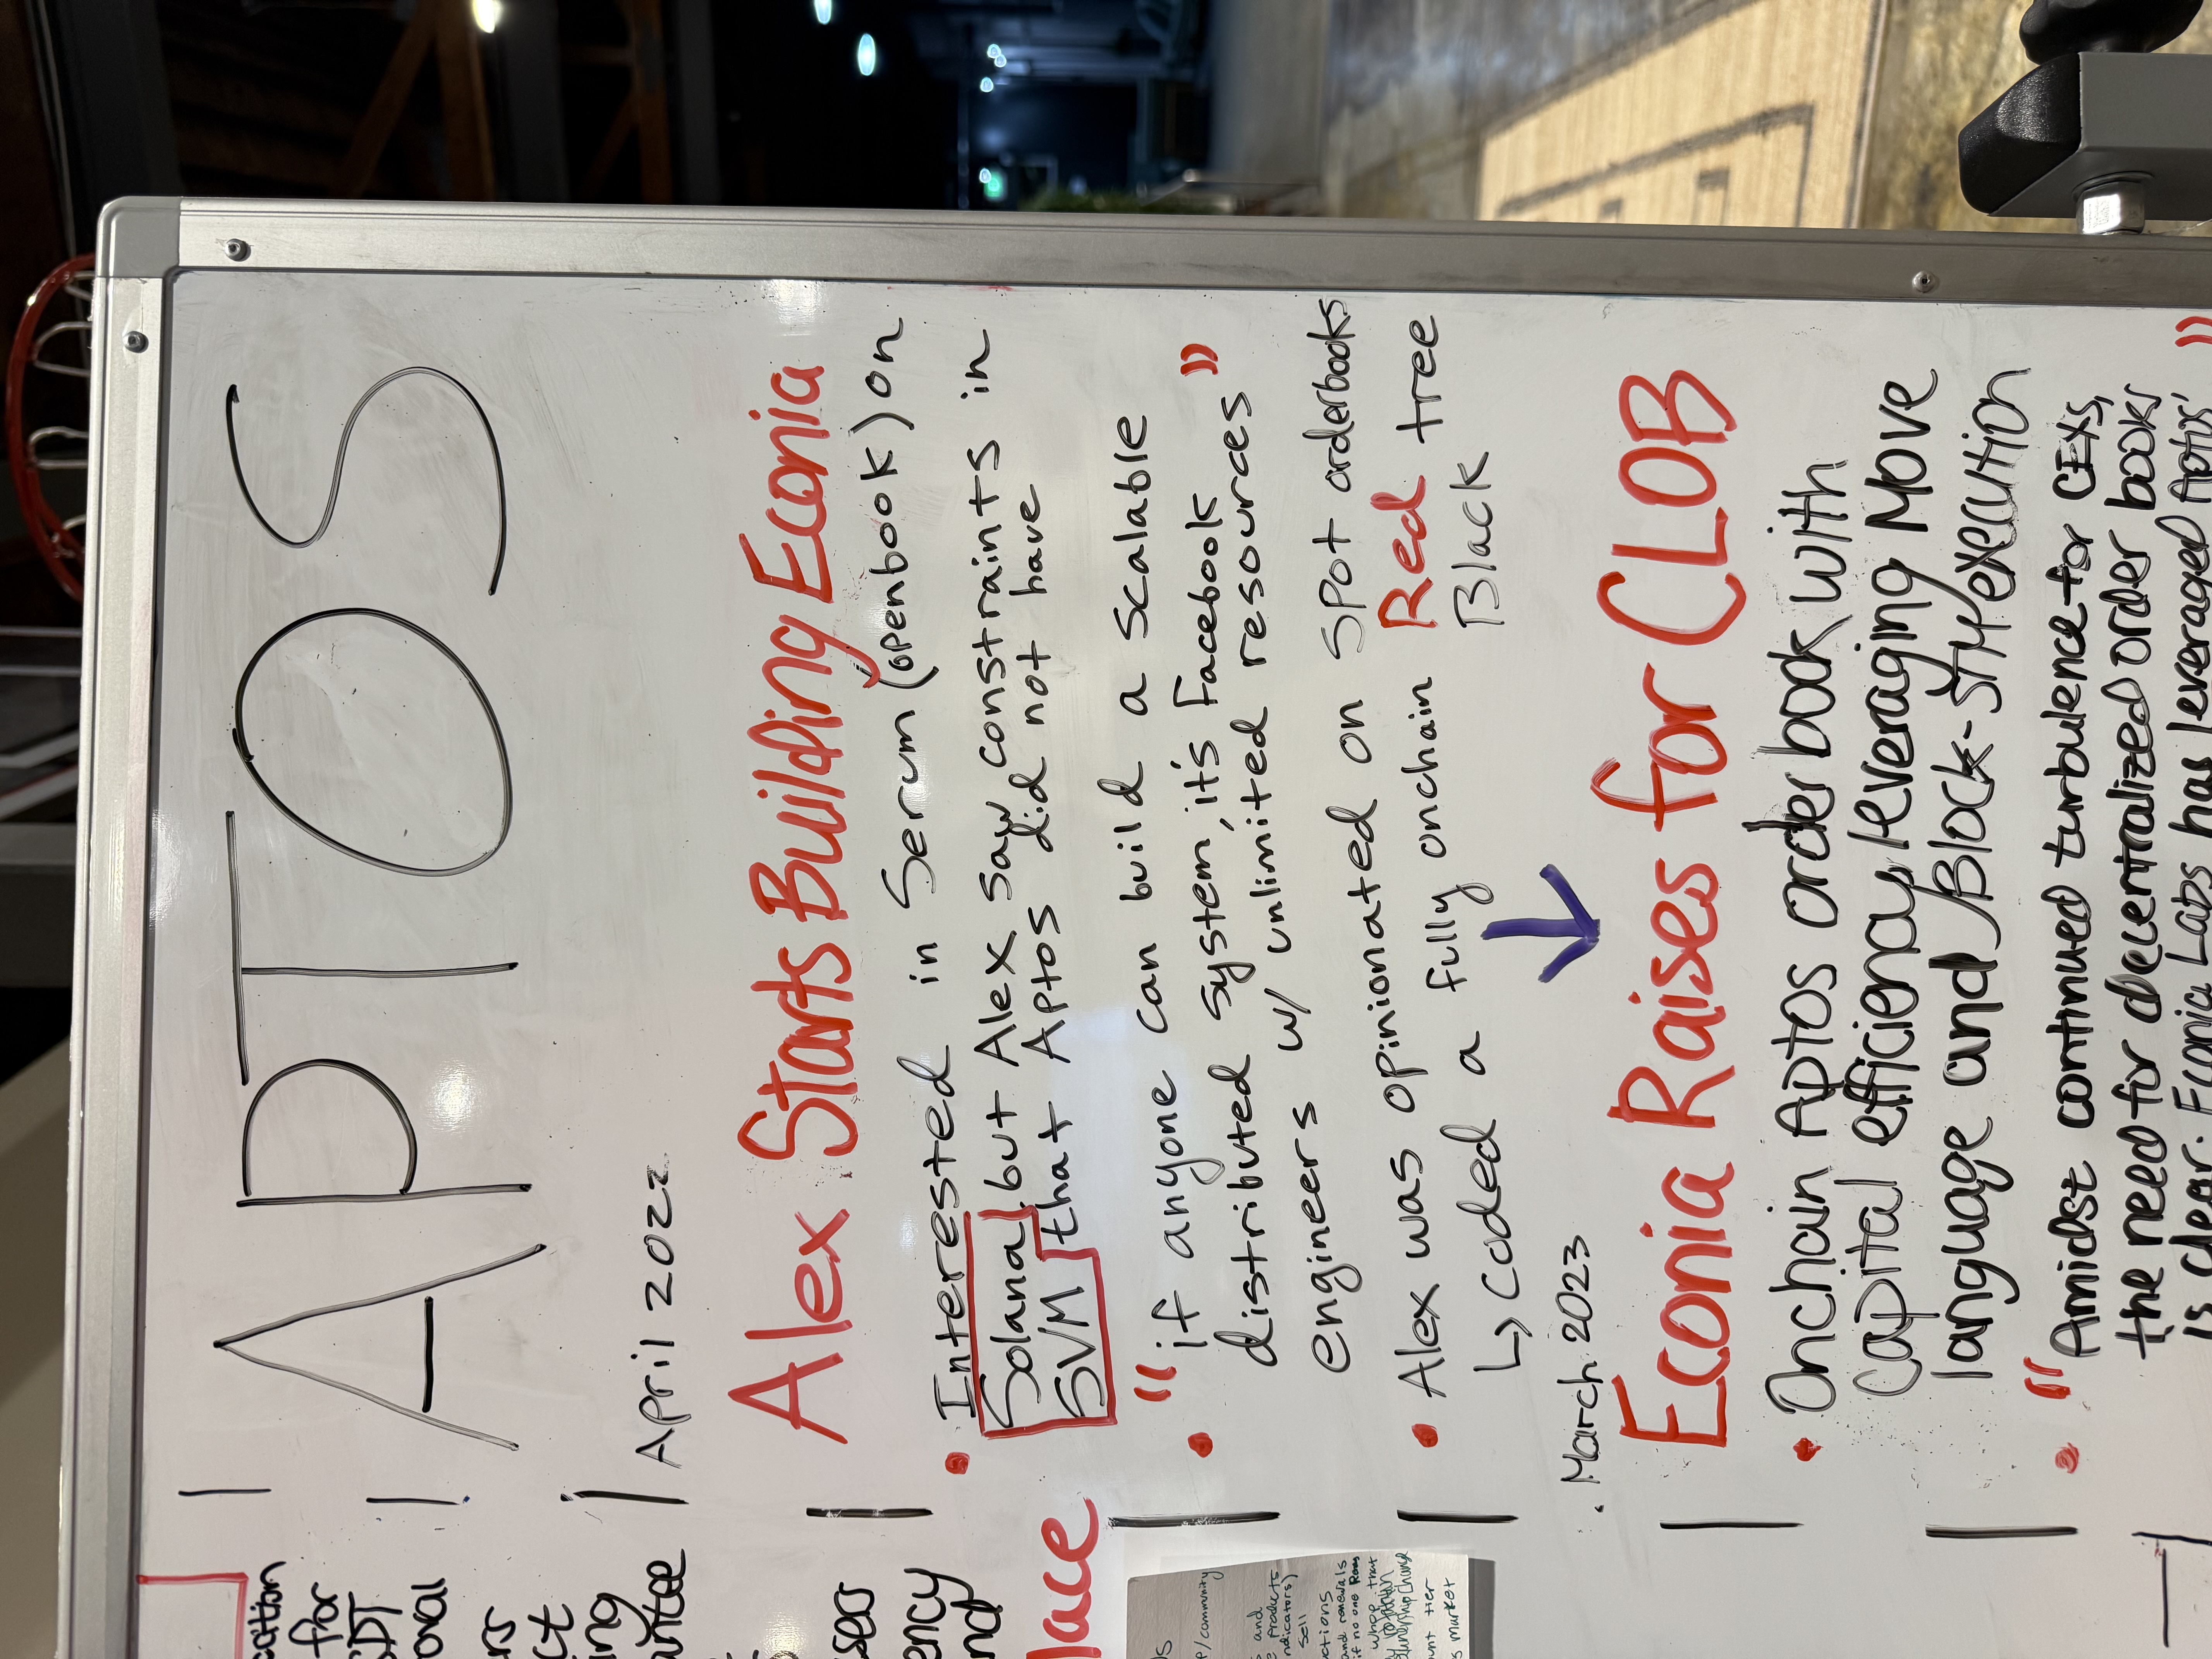 APTOS
April 2022
Alex Starts Building Econia
• Interested in Serum (openbook) on
Solana, but Alex saw constraints in
SVM that Aptos did not have
• "if anyone can build a scalable
distributed system, it's Facebook
engineers w/ unlimited resources"
• Alex was opinionated on spot orderbooks
↳ coded a fully onchain Red tree
Black
March 2023
Econia Raises for CLOB
• Onchain Aptos order book with
capital efficiency, leveraging Move
language and Block-STM execution
• "Amidst continued turbulence for CEXs,
the need for decentralized order books
is clear. Econia Labs has leveraged Aptos'"
for
oval
ct
ency
lace
/community
and
products
indicators)
sell
and renewals
if no one
that
tier
market